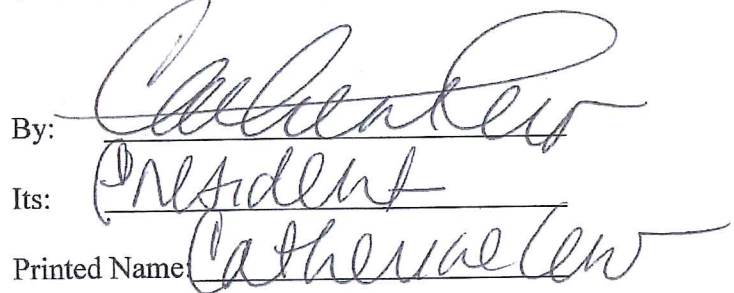 By: Catherine Lew
Its: President
Printed Name: Catherine Lew